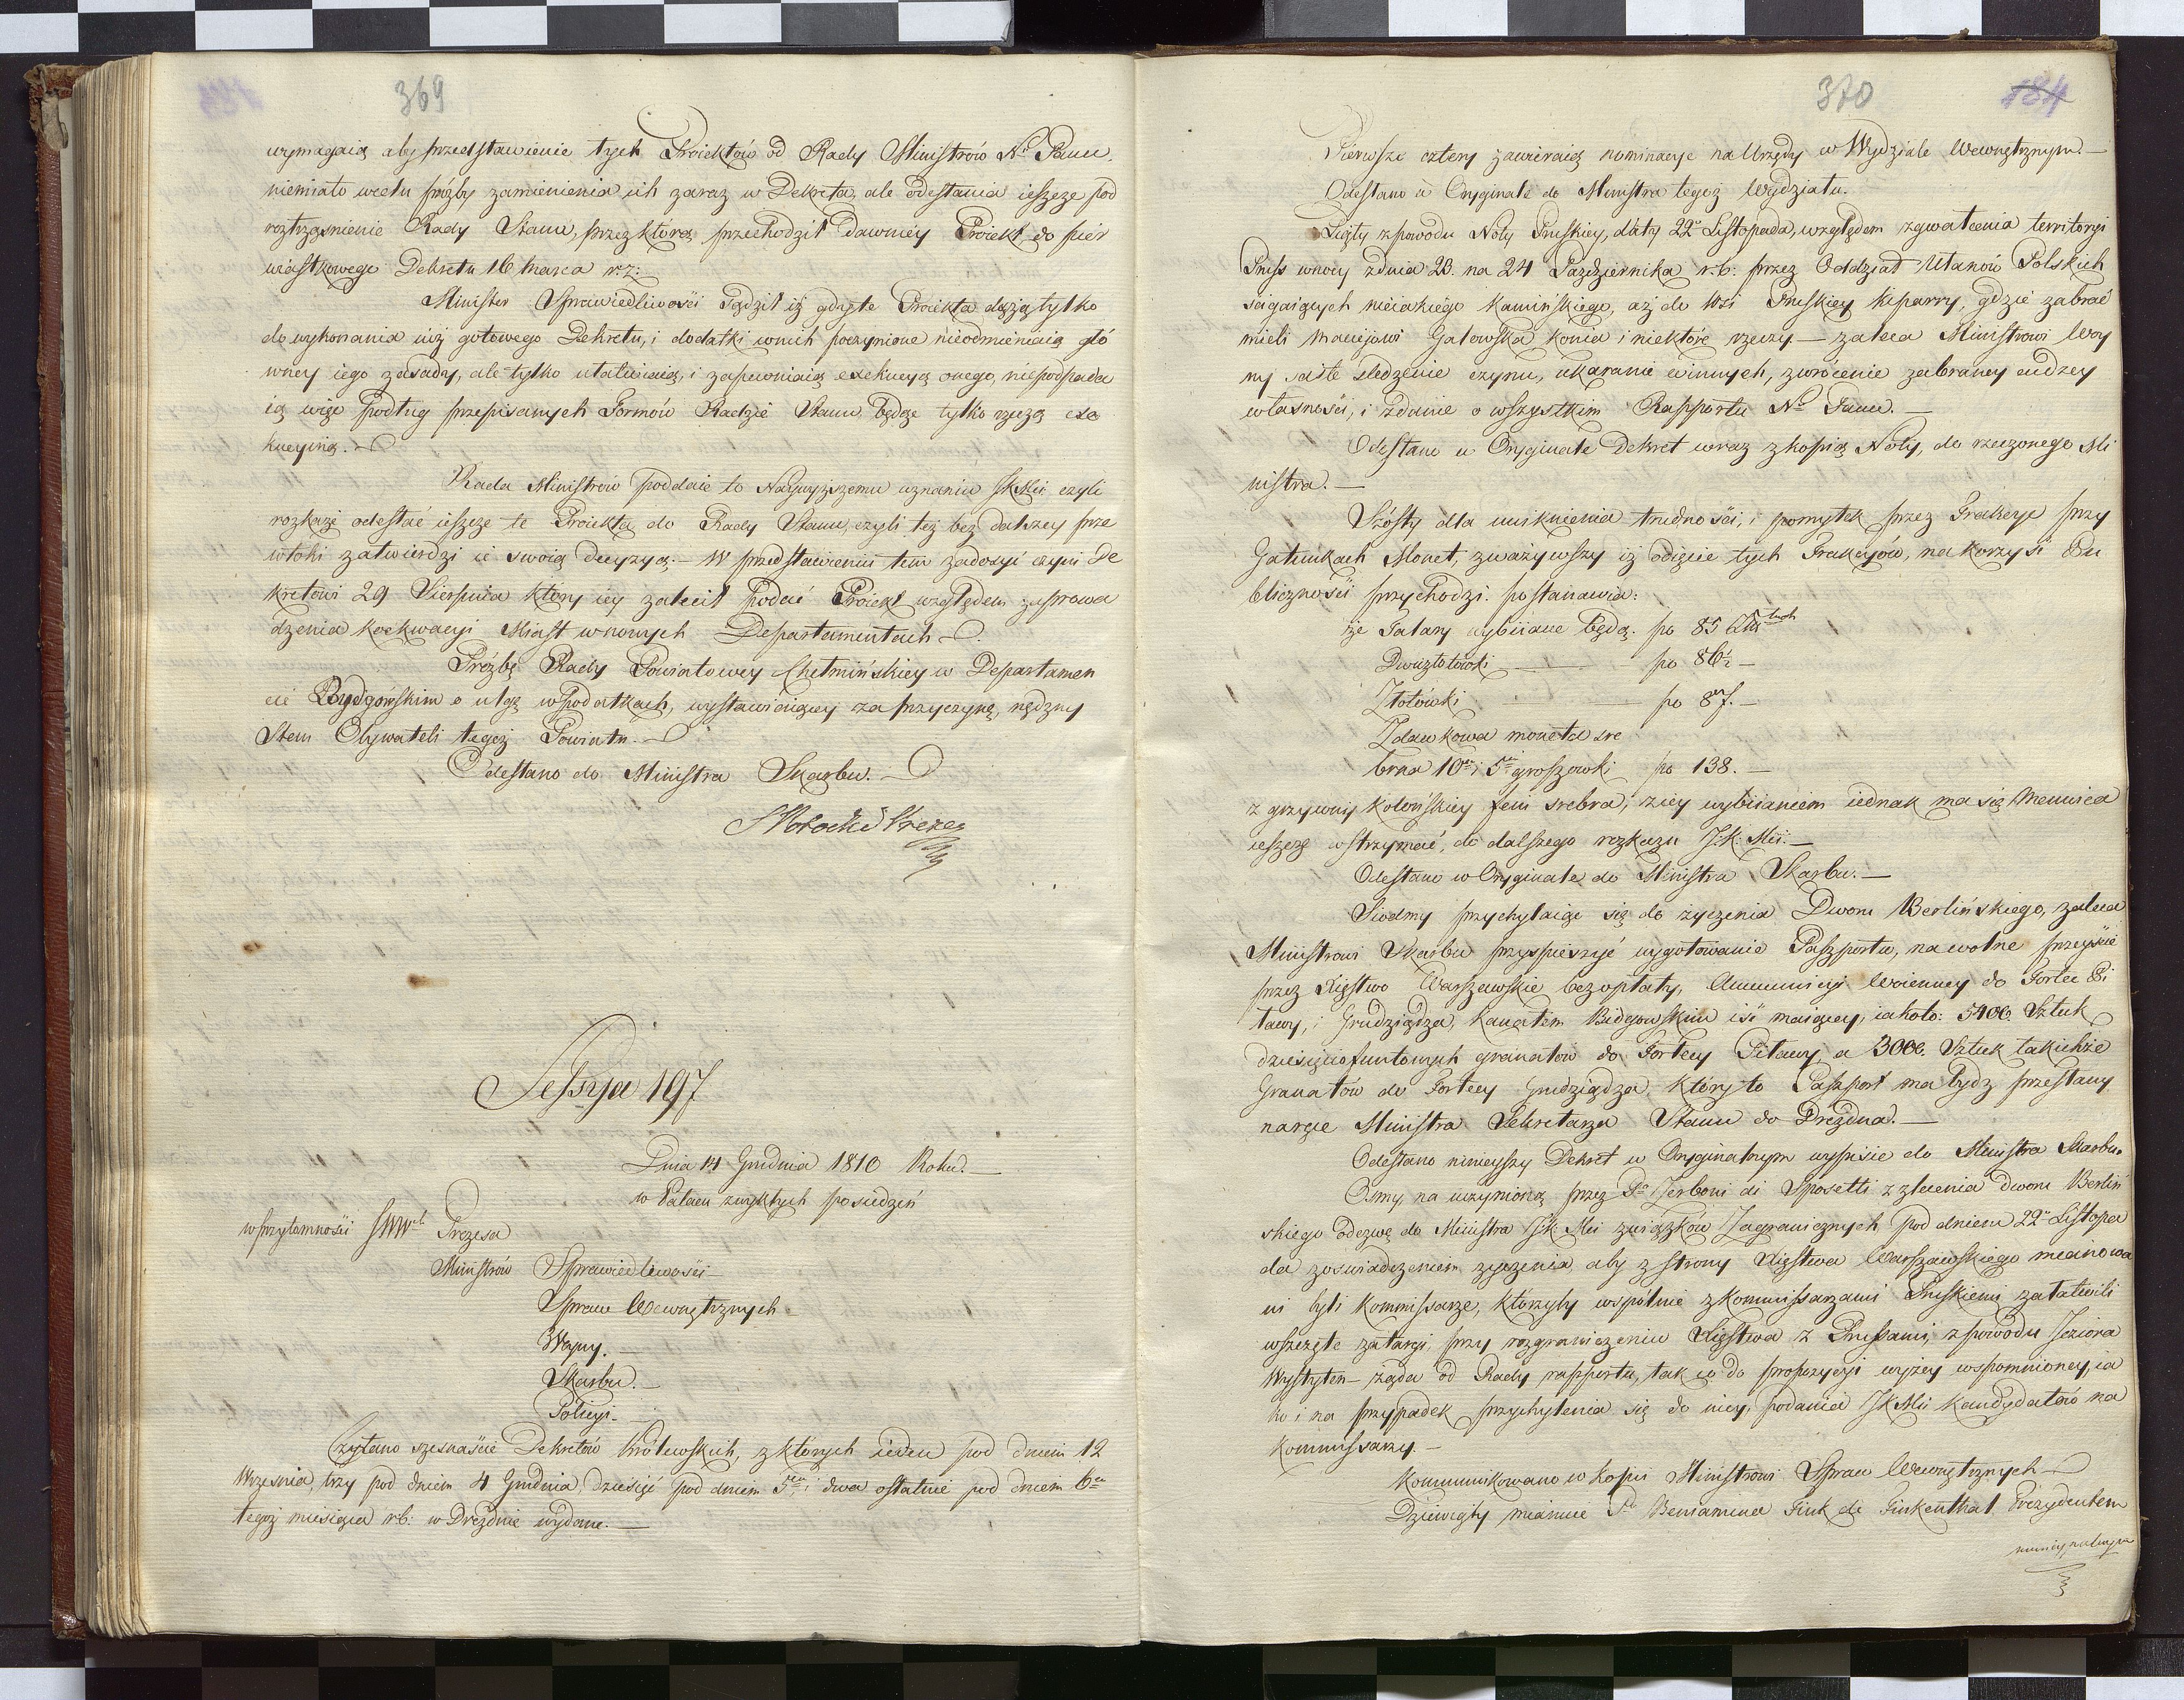 369
wymagaią aby przedstawienie tych Proiektów od Rady Ministrów Nu Panu,
niemiało wcelu prózby zamienienia ich zaraz w Dekreta, ale odesłania ieszcze pod
roztrząsnienie Rady Stanu, przez którą przechodził dawniey Proiekt do pier
wiastkowego Dekretu 16 Marca r: z:
Minister Sprawiedliwości sądził iż gdy te Proiekta dążą tylko
do wykonania iuż gotowego Dekretu, i dodatki wnich poczynione nieodmieniaią głó
wney iego zasady, ale tylko ułatwiaią, i zapewniaią exekucyą onego, niepodpada
ią więc podług przepisanych Formów Radzie Stanu będąc tylko rzeczą exe
kucyiną.
Rada Ministrów poddaie to Naywyższemu uznaniu JKMci czyli
rozkaże odesłać ieszcze te Proiekta do Rady Stanu, czyli też bez dalszey prze
włoki zatwierdzi ie swoią decyzyą. – W przedstawieniu tem zadosyć czyni De
kretowi 29 Sierpnia który iey zalecił podać Proiekt względem zaprowa
dzenia koekwacyi Miast wnowych Departamentach.
Prózbę Rady Powiatowey Chełmińskiey w Departamen
cie Bydgowskim o ulgę wpodatkach, wystawiaiącey za przyczynę, nędzny
Stan Obywateli tegoż Powiatu.
Odesłano do Ministra Skarbu.
Sessya 197
Dnia 14 Grudnia 1810 Roku. –
w Pałacu zwykłych posiedzeń
wprzytomności JWWch Prezesa
Ministrów Sprawiedliwości –
Spraw Wewnętrznych –
Woyny. –
Skarbu. –
Policyi. –
Czytano szesnaście Dekretów Królewskich, z których ieden pod dniem 12
Września, trzy pod dniem 4 Grudnia, dziesięć pod dniem 5m i dwa ostatnie pod dniem 6m
tegoż miesiąca r b: w Dreźnie wydane. –
370 184
Pierwsze cztery zawieraią nominacye na Urzędy w Wydziale Wewnętrznym. –
Odesłano w Oryginale do Ministra tegoż Wydziału.
Piąty zpowodu Noty Pruskiey, daty 22o Listopada, względem zgwałcenia territoryi
Prus wnocy zdnia 23. na 24 Października r b: przez Oddział Ułanów Polskich
ścigaiących nieiakiego Kamińskiego, aż do Wsi Pruskiey Keparry, gdzie zabrać
mieli Macieiowi Gałowska konia i niektóre rzeczy – zaleca Ministrowi Woy
ny ścisłe śledzenie czynu, ukaranie winnych, zwrócenie zabraney cudzey
własności, i zdanie o wszystkim Rapportu Nu Panu. –
Odesłano w Oryginale Dekret wraz zkopią Noty, do rzeczonego Mi
nistra. –
Szósty dla uniknienia trudności, i pomyłek przez Frakcye przy
Gatunkach Monet, zważywszy iż odięcie tych Frakcyów, na korzyść Pu
bliczności przychodzi. postanawia:
że Talary wybiiane będą. po 85
Dwuzłotówki – po 86½ –
Złotówki – po 87. –
Zdawkowa moneta sre
brna 10o i 5o groszowki po 138. –
z grzywny kolońskiey fein srebra, z iey wybiianiem iednak ma się Mennica
ieszcze wstrzymać, do dalszego rozkazu J: K: Mci. –
Odesłano w Oryginale do Ministra Skarbu. –
Siódmy przychylaiąc się do życzenia Dworu Berlińskiego, zaleca
Ministrowi Skarbu przyspieszyć wygotowanie Paszportu, na wolne przeyście
przez Xięstwo Warszawskie bez opłaty, Ammunicyi woienney do Fortec Pi
ławy, i Grudziądza, kanałem Bidgowskim iść maiącey, iakoto: 5400. Sztuk
dziesięciofuntowych granatów do Fortecy Piławy, a 3000. Sztuk takichże
Granatów do Fortecy Grudziądza, który to Paszport ma bydź przesłany
naręce Ministra Sekretarza Stanu do Drezdna. –
Odesłano ninieyszy Dekret w Oryginalnym wypisie do Ministra Skarbu.
Osmy, na uczynioną przez Pa Zerboni di Sposetti z zlecenia Dworu Berliń
skiego odezwę do Ministra JK: Mci związków Zagranicznych pod dniem 22o Listopa
da zoświadczeniem życzenia, aby z strony Xięstwa Warszawskiego mianowa
ni byli Kommissarze, którzyby wspólnie zkommissarzami Pruskiemi załatwili
wszczęte zatargi, przy rozgraniczeniu Xięstwa z Prusami, zpowodu Jeziora
Wysztyten – żąda od Rady rapportu, tak co do propozycyi wyżey wspomnioney, ia
ko i na przypadek przychylenia się do niey, podania JKMci Kandydatów na
Kommissarzy. –
Kommunikowano w kopii Ministrowi Spraw Wewnętrznych –
Dziewiąty mianuie Pa Beniamina Fink de Finkenthal Prezydentem
municypalnym